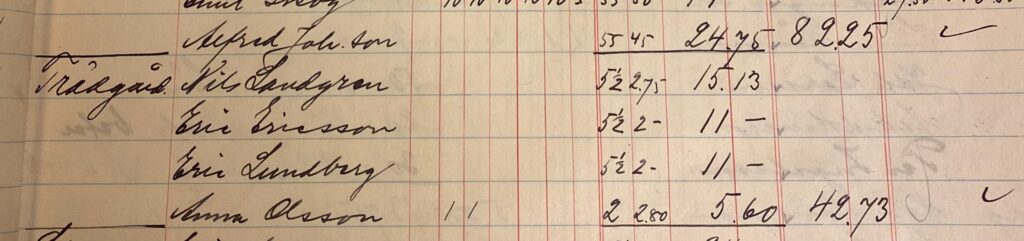 10 10 10 10 10 5 55 50
Alfred Joh.son 55 45 24.75 82.25 ✓
Trädgård. Nils Landgren 5½ 2.75 15.13
Eric Ericsson 5½ 2- 11 –
Eric Lundberg 5½ 2- 11 –
Anna Olsson 1 1 2 2.80 5.60 42.73 ✓